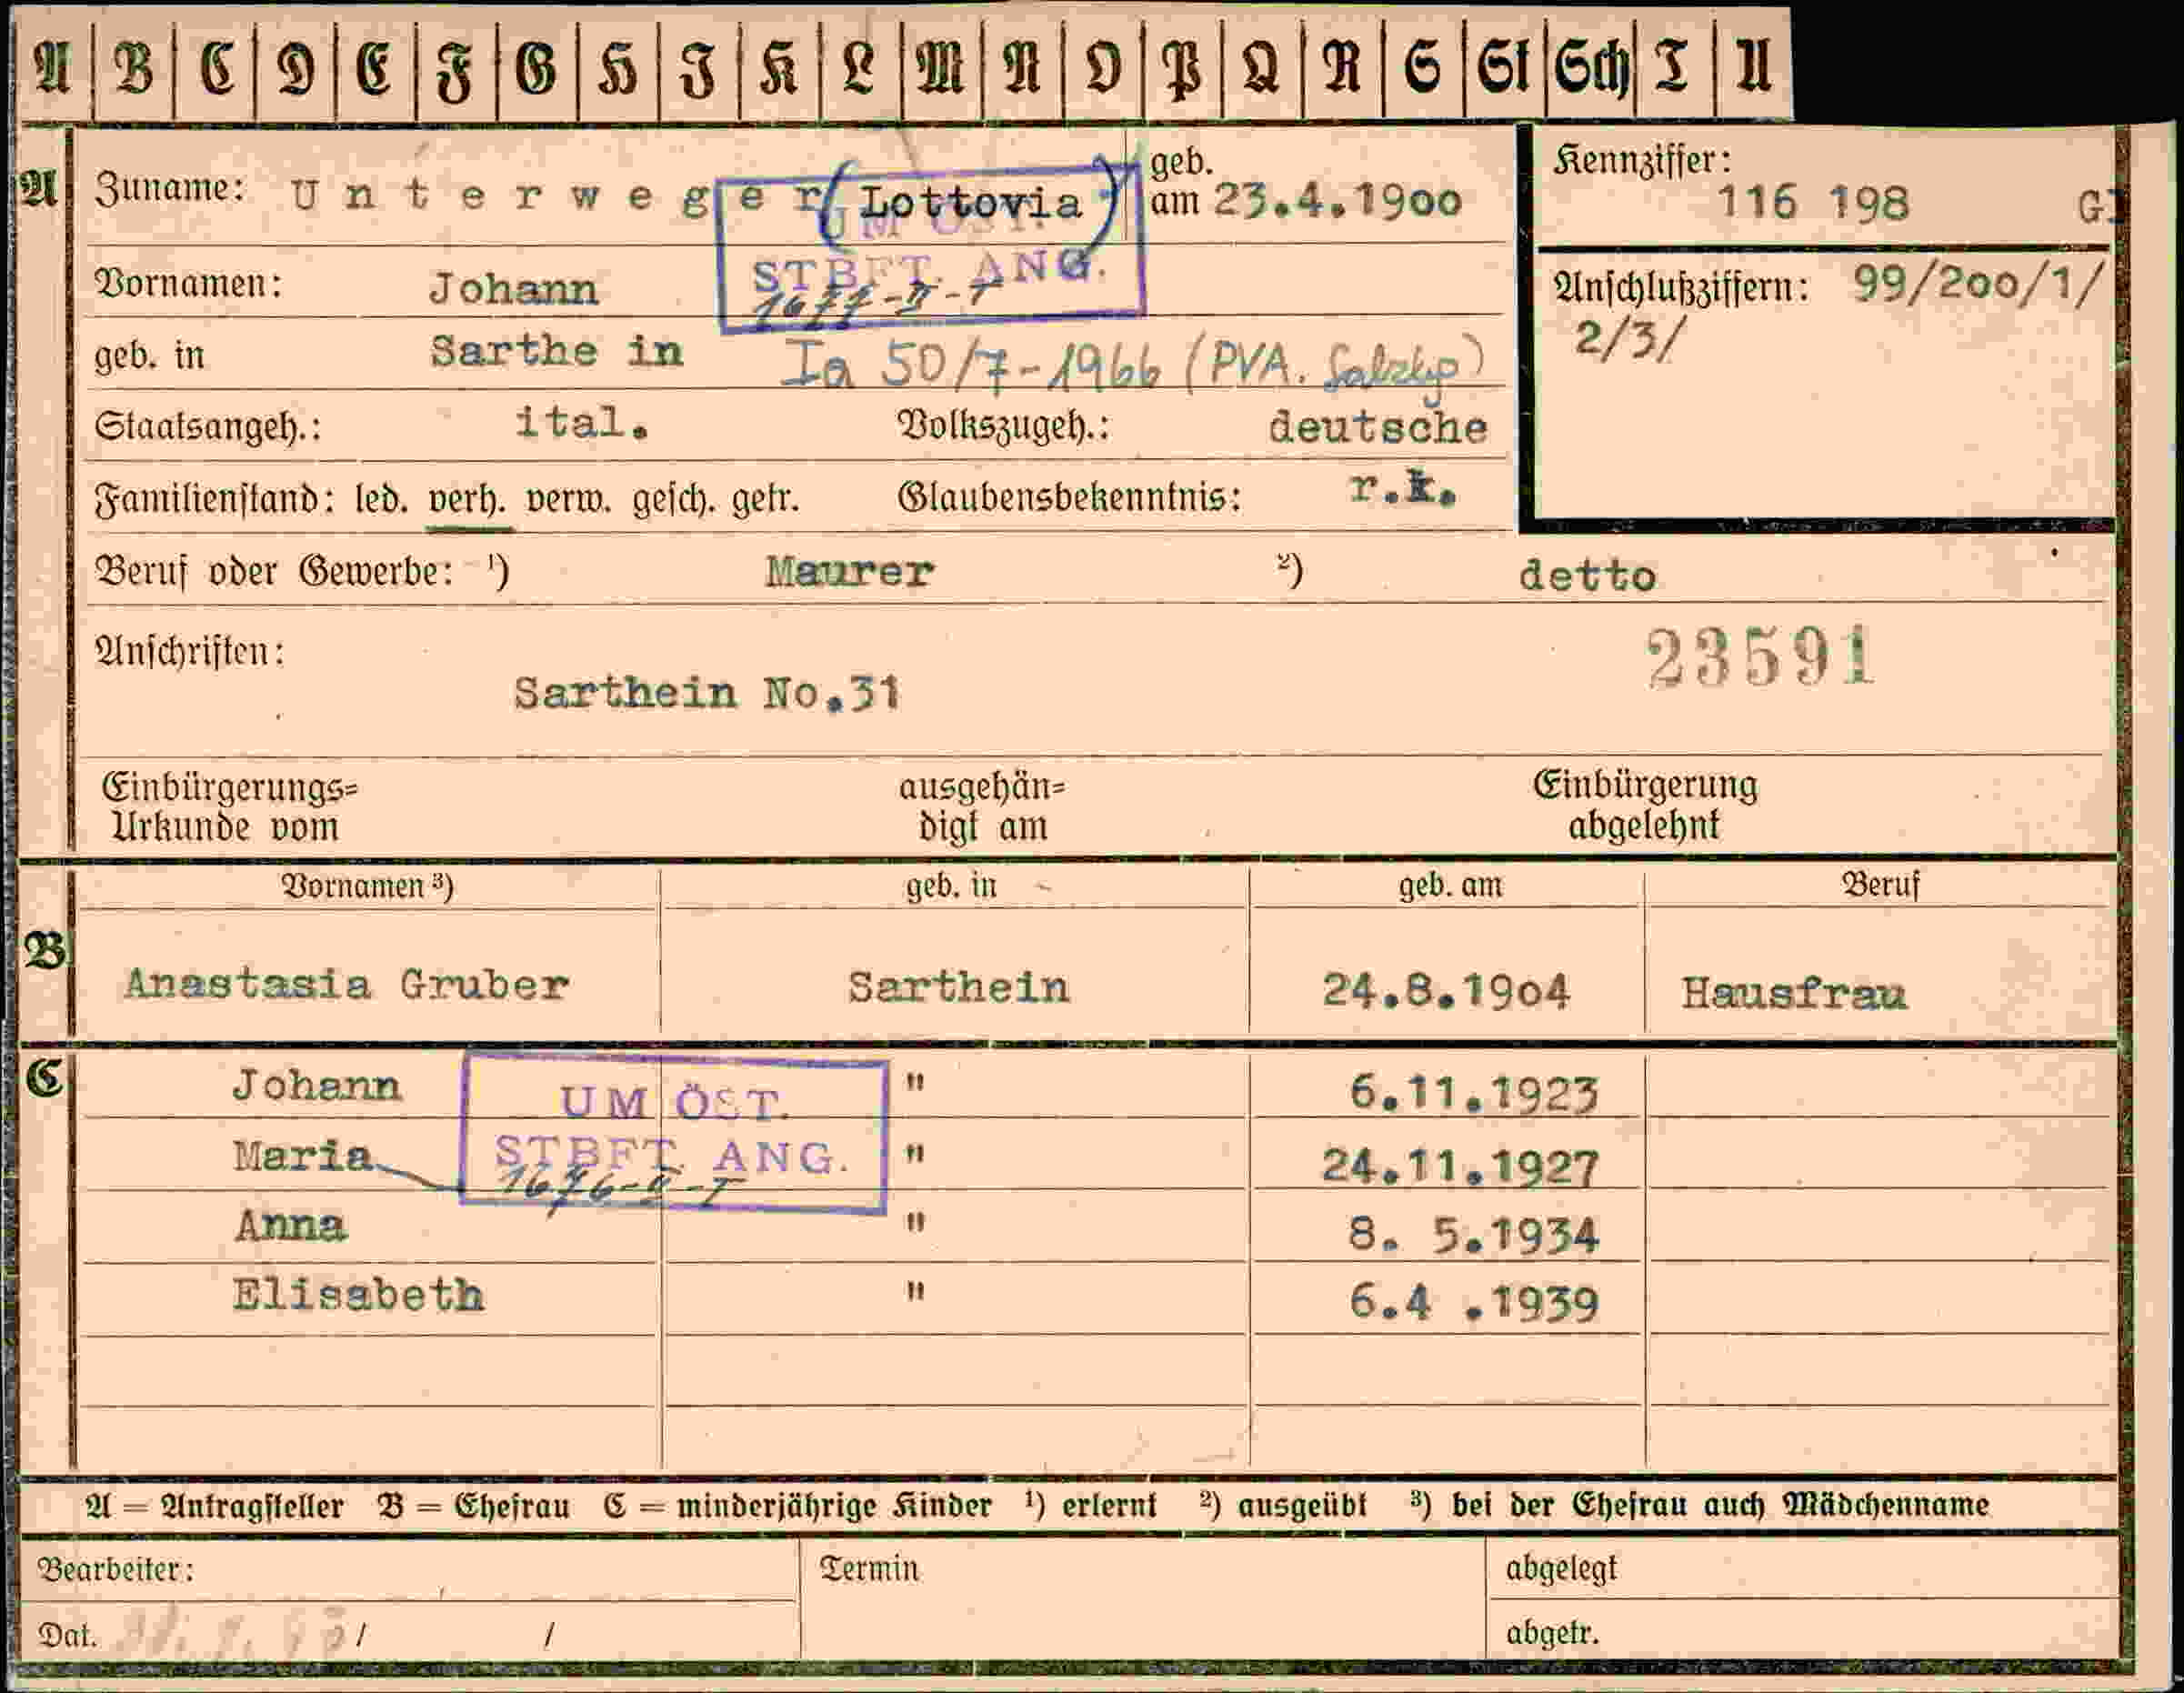 A B C D E F G H I K L M N O P Q R S St Sch T U
A Zuname: Unterweger (Lottovia) geb. am 23.4.1900
Kennziffer: 116 198
UM ÖST.
STBFT. ANG.
Vornamen: Johann
Anschlußziffern: 99/200/1/
2/3/
geb. in Sarthe in Ia 50/7-1966 (PVA.
Staatsangeh.: ital. Volkszugeh.: deutsche
Familienstand: led. verh. verw. gesch. getr. Glaubensbekenntnis: r.k.
Beruf oder Gewerbe: ¹) Maurer ²) detto
Anschriften: 23591
Sarthein No.31
Einbürgerungs= ausgehän= Einbürgerung
Urkunde vom digt am abgelehnt
Vornamen ³) geb. in geb. am Beruf
B
Anastasia Gruber Sarthein 24.8.1904 Hausfrau
C Johann " 6.11.1923
UM ÖST.
Maria " 24.11.1927
STBFT. ANG.
1676-II-T
Anna " 8. 5.1934
Elisabeth " 6.4 .1939
A = Antragsteller B = Ehefrau C = minderjährige Kinder ¹) erlernt ²) ausgeübt ³) bei der Ehefrau auch Mädchenname
Bearbeiter: Termin abgelegt
Dat. / / abgetr.